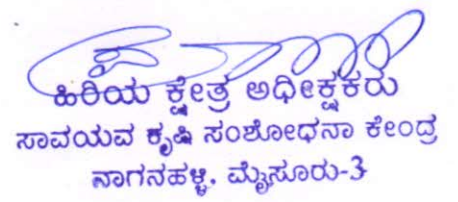 ಹಿರಿಯ ಕ್ಷೇತ್ರ ಅಧೀಕ್ಷಕರು
ಸಾವಯವ ಕೃಷಿ ಸಂಶೋಧನಾ ಕೇಂದ್ರ
ನಾಗನಹಳ್ಳಿ, ಮೈಸೂರು-3